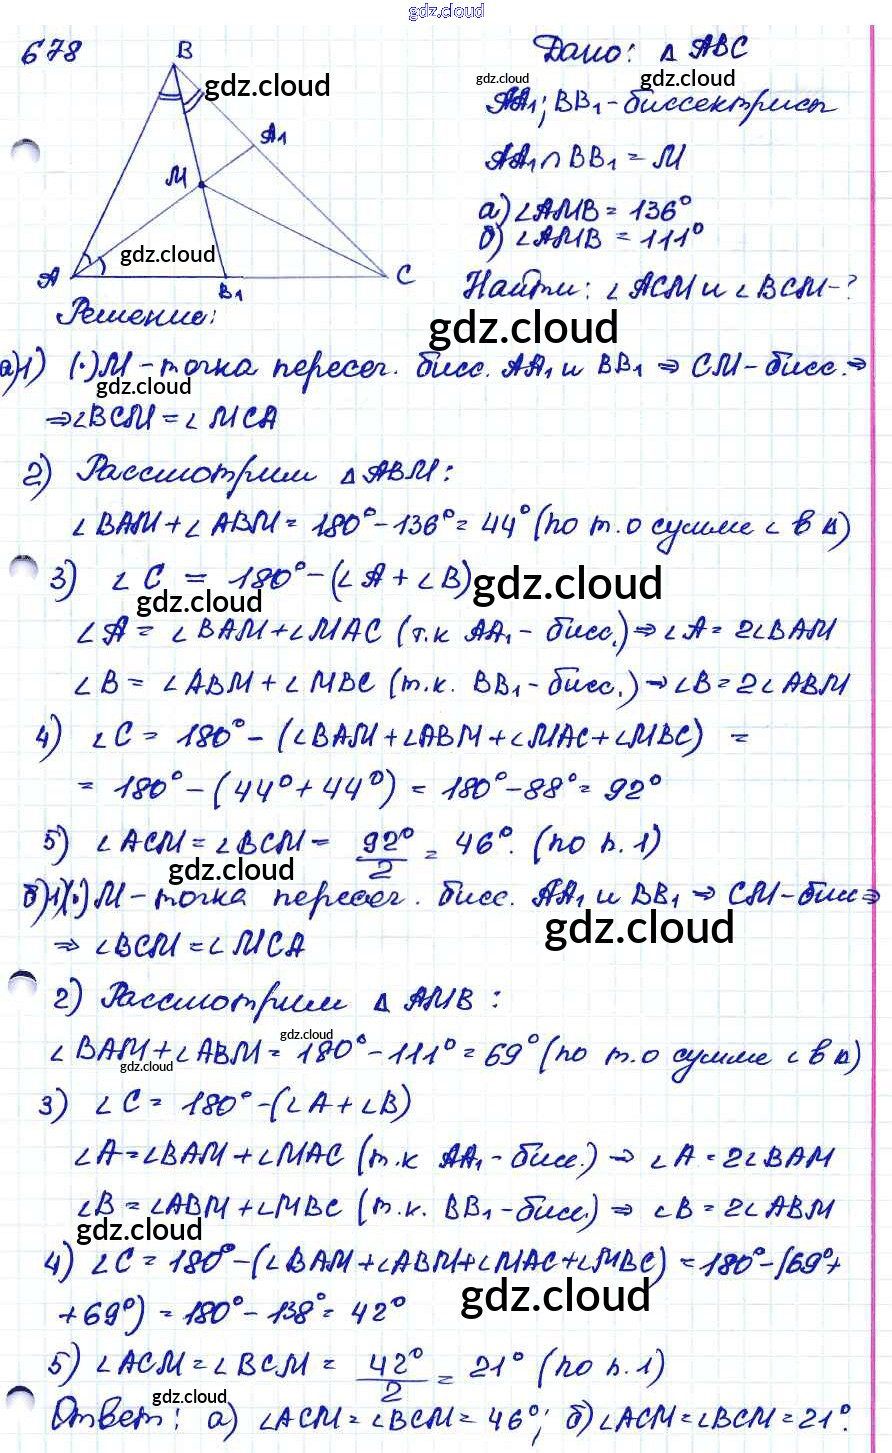 gdz.cloud
678
B
Дано: △ ABC
gdz.cloud
gdz.cloud
gdz.cloud
AA₁; BB₁ - биссектрисы
A₁
AA₁ ∩ BB₁ = M
M
а) ∠AMB = 136°
б) ∠AMB = 111°
gdz.cloud
A
B₁
C
Найти: ∠ ACM и ∠ BCM - ?
Решение:
gdz.cloud
а)1) (·) M - точка пересеч. бисс. AA₁ и BB₁ ⇒ CM - бисс. ⇒
gdz.cloud
⇒ ∠BCM = ∠ MCA
2) Рассмотрим △ ABM:
∠ BAM + ∠ ABM = 180° - 136° = 44° (по т. о сумме ∠ в △)
3) ∠ C = 180° - (∠ A + ∠ B)
gdz.cloud
gdz.cloud
∠ A = ∠ BAM + ∠ MAC (т.к AA₁ - бисс.) ⇒ ∠ A = 2∠ BAM
∠ B = ∠ ABM + ∠ MBC (т.к. BB₁ - бисс.) → ∠ B = 2∠ ABM
4) ∠ C = 180° - (∠ BAM + ∠ ABM + ∠ MAC + ∠ MBC) =
= 180° - (44° + 44°) = 180° - 88° = 92°
5) ∠ ACM = ∠ BCM = 92°/2 = 46°. (по п. 1)
gdz.cloud
б)1)(·) M - точка пересеч. бисс. AA₁ и BB₁ ⇒ CM - бисс ⇒
gdz.cloud
⇒ ∠ BCM = ∠ MCA
2) Рассмотрим △ AMB :
gdz.cloud
∠ BAM + ∠ ABM = 180° - 111° = 69° (по т. о сумме ∠ в △)
gdz.cloud
3) ∠ C = 180° - (∠ A + ∠ B)
∠ A = ∠ BAM + ∠ MAC (т.к AA₁ - бисс.) ⇒ ∠ A = 2∠ BAM
∠ B = ∠ ABM + ∠ MBC (т.к. BB₁ - бисс.) ⇒ ∠ B = 2∠ ABM
gdz.cloud
4) ∠ C = 180° - (∠ BAM + ∠ ABM + ∠ MAC + ∠ MBC) = 180° - (69° +
gdz.cloud
+ 69°) = 180° - 138° = 42°
5) ∠ ACM = ∠ BCM = 42°/2 = 21° (по п. 1)
gdz.cloud
Ответ: а) ∠ ACM = ∠ BCM = 46°; б) ∠ ACM = ∠ BCM = 21°.
gdz.cloud